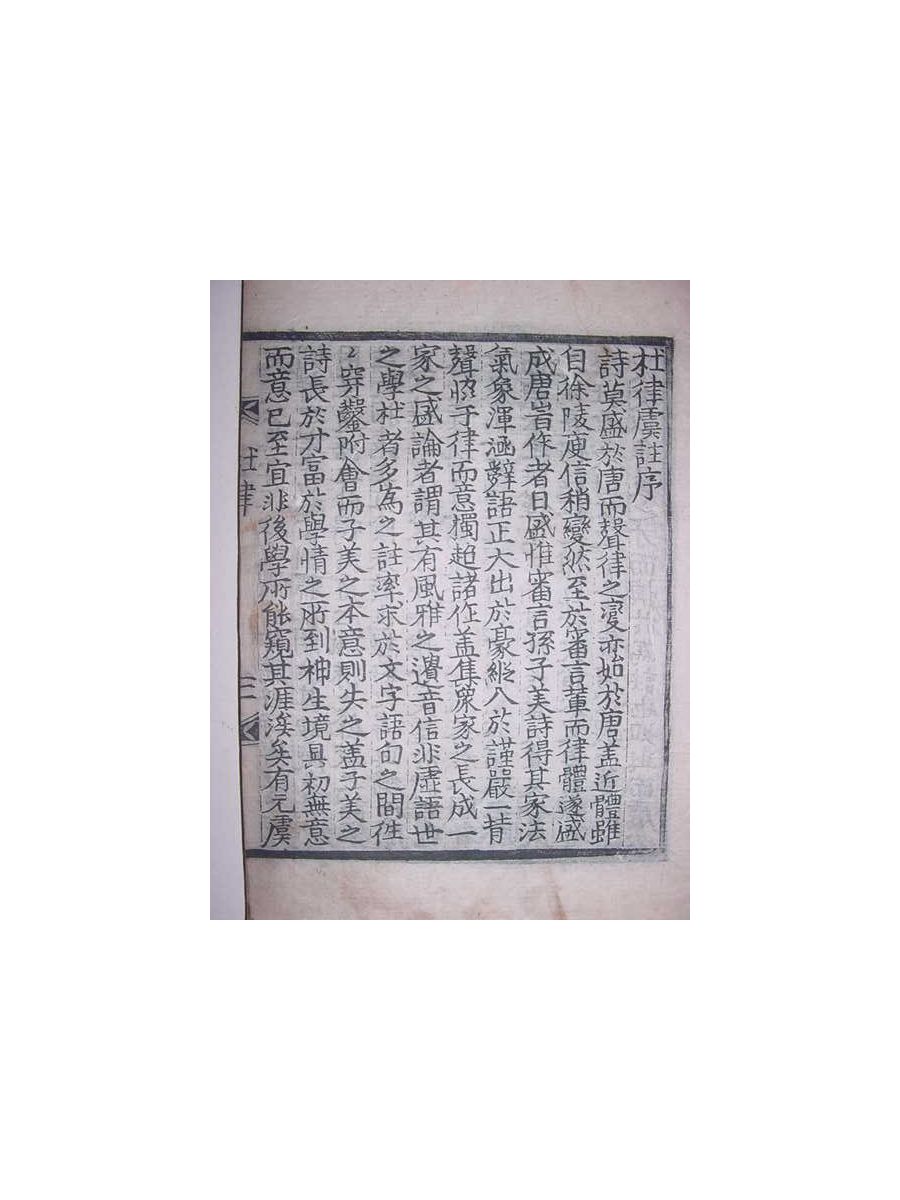 杜律虞註序
詩莫盛於唐而聲律之變亦始於唐盖近體雖
自徐陵庾信稍變然至於審言軰而律體遂盛
成唐旹作者日盛惟審言孫子美詩得其家法
氣象渾涵辭語正大出於豪縱入於謹嚴一旹
聲恊于律而意獨超諸作盖集衆家之長成一
家之盛論者謂其有風雅之遺音信非虛語世
之學杜者多為之註率求於文字語句之間徃
〻穿鑿附會而子美之本意則失之盖子美之
詩長於才富於學情之所到神生境具初無意
而意已至宜非後學所能窺其涯涘矣有元虞
杜律